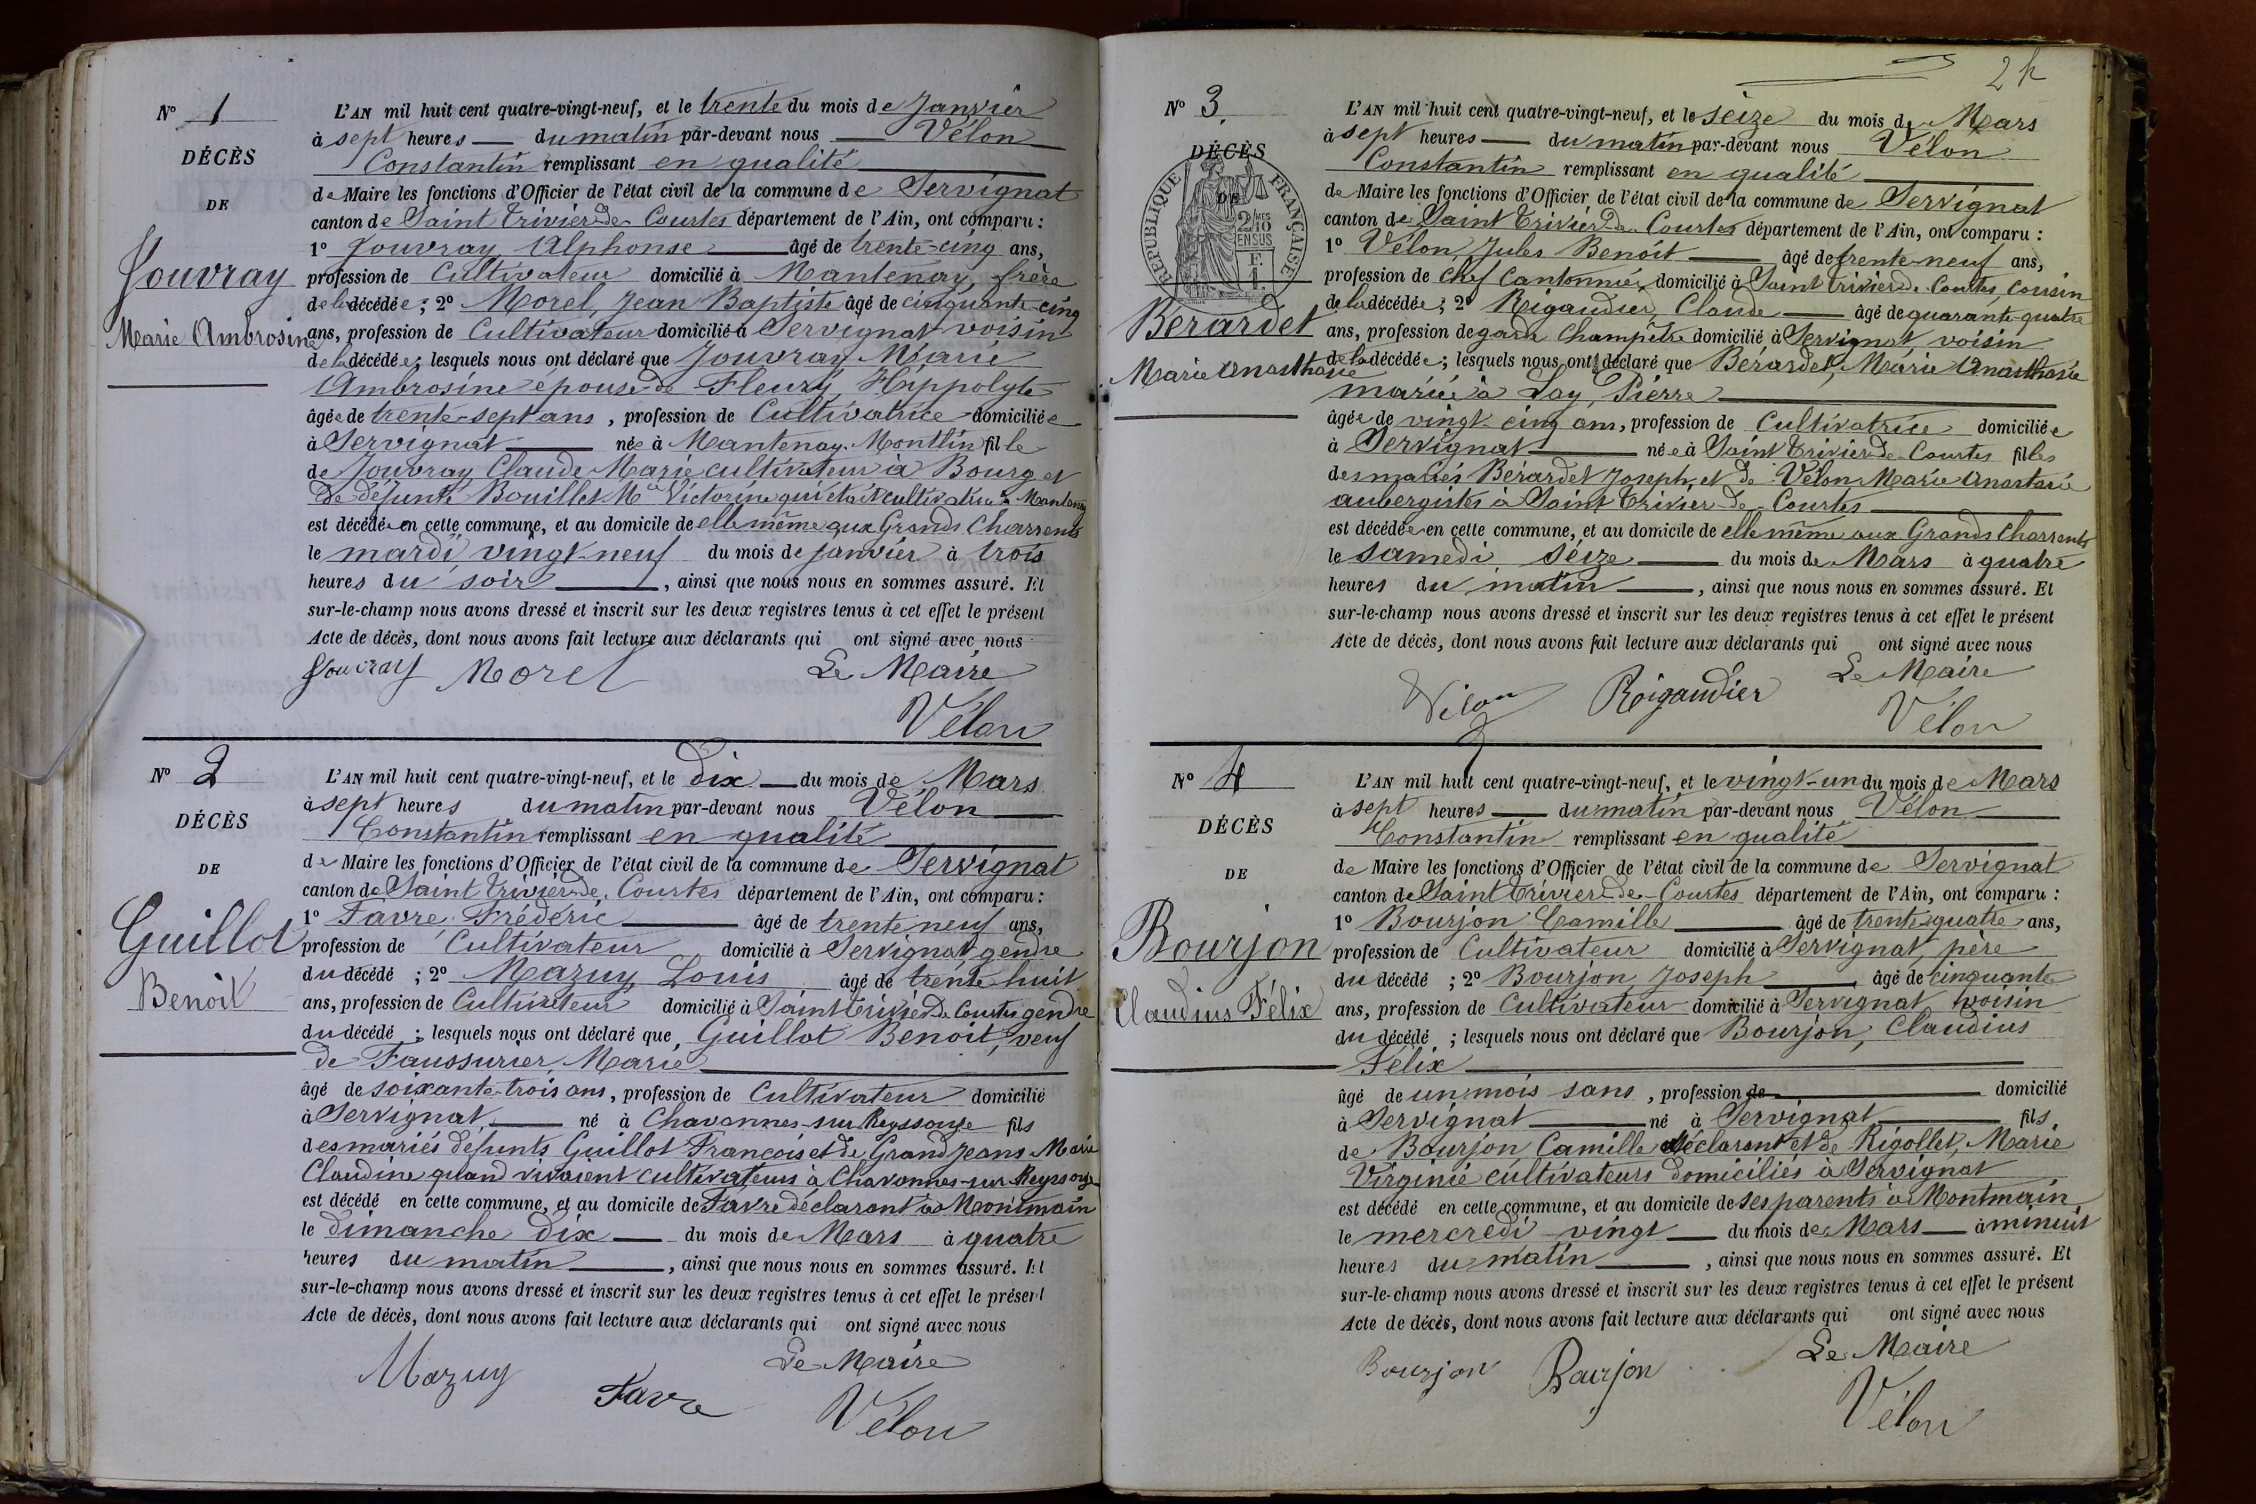 N° 1
DÉCÈS
DE
Jouvray
Marie Ambrosine
L'AN mil huit cent quatre-vingt-neuf, et le trente du mois de Janvier
à sept heures du matin par-devant nous Vélon
Constantin remplissant en qualité
de Maire les fonctions d'Officier de l'état civil de la commune de Servignat
canton de Saint Trivier de Courtes département de l'Ain, ont comparu :
1° Jouvray Alphonse âgé de trente-cinq ans,
profession de Cultivateur domicilié à Mantenay, frère
de la décédée ; 2° Morel, Jean Baptiste âgé de cinquante-cinq
ans, profession de Cultivateur domicilié à Servignat voisin
de la décédée ; lesquels nous ont déclaré que Jouvray Marie
Ambrosine épouse de Fleury Hippolyte
âgée de trente-sept ans, profession de Cultivatrice domiciliée
à Servignat née à Mantenay-Montlin fille
de Jouvray Claude Marie cultivateur à Bourg et
de défunte Bouillet Mie Victorine qui était cultivatrice à Mantenay
est décédée en cette commune, et au domicile de elle même aux Grands Charrents
le mardi vingt-neuf du mois de janvier à trois
heures du soir, ainsi que nous nous en sommes assuré. Et
sur-le-champ nous avons dressé et inscrit sur les deux registres tenus à cet effet le présent
Acte de décès, dont nous avons fait lecture aux déclarants qui ont signé avec nous
Jouvray Morel Le Maire
Vélon
N° 2
DÉCÈS
DE
Guillot
Benoit
L'AN mil huit cent quatre-vingt-neuf, et le dix du mois de Mars
à sept heures du matin par-devant nous Vélon
Constantin remplissant en qualité
de Maire les fonctions d'Officier de l'état civil de la commune de Servignat
canton de Saint Trivier de Courtes département de l'Ain, ont comparu :
1° Favre Frédéric âgé de trente neuf ans,
profession de Cultivateur domicilié à Servignat, gendre
du décédé ; 2° Mazuy Louis âgé de trente huit
ans, profession de Cultivateur domicilié à Saint Trivier de Courtes gendre
du décédé ; lesquels nous ont déclaré que Guillot Benoit, veuf
de Faussurier, Marie
âgé de soixante-trois ans, profession de Cultivateur domicilié
à Servignat né à Chavannes-sur Reyssouze fils
des mariés défunts Guillot François et de Grandjeans Marie
Claudine quand vivaient cultivateurs à Chavannes-sur Reyssouze
est décédé en cette commune, et au domicile de Favre déclarant à Montmain
le dimanche dix du mois de Mars à quatre
heures du matin, ainsi que nous nous en sommes assuré. Et
sur-le-champ nous avons dressé et inscrit sur les deux registres tenus à cet effet le présent
Acte de décès, dont nous avons fait lecture aux déclarants qui ont signé avec nous
Mazuy Favre Le Maire
Vélon
N° 3
DÉCÈS
DE
RÉPUBLIQUE FRANÇAISE
Berardet
Marie Anasthasie
L'AN mil huit cent quatre-vingt-neuf, et le seize du mois de Mars
à sept heures du matin par-devant nous Vélon
Constantin remplissant en qualité
de Maire les fonctions d'Officier de l'état civil de la commune de Servignat
canton de Saint Trivier de Courtes département de l'Ain, ont comparu :
1° Vélon Jules Benoit âgé de trente-neuf ans,
profession de chef Cantonnier domicilié à Saint Trivier de Courtes, cousin
de la décédée ; 2° Rigaudier, Claude âgé de quarante-quatre
ans, profession de garde Champêtre domicilié à Servignat voisin
de la décédée ; lesquels nous ont déclaré que Bérardet, Marie Anasthasie
mariée à Lay, Pierre
âgée de vingt-cinq ans, profession de Cultivatrice domiciliée
à Servignat née à Saint Trivier de Courtes fille
des mariés Bérardet Joseph et de Vélon Marie Anastasie
aubergistes à Saint Trivier-de-Courtes
est décédée en cette commune, et au domicile de elle même aux Grands Charrents
le samedi seize du mois de Mars à quatre
heures du matin, ainsi que nous nous en sommes assuré. Et
sur-le-champ nous avons dressé et inscrit sur les deux registres tenus à cet effet le présent
Acte de décès, dont nous avons fait lecture aux déclarants qui ont signé avec nous
Vélon Roigaudier Le Maire
Vélon
N° 4
DÉCÈS
DE
Bourjon
Claudius Félix
L'AN mil huit cent quatre-vingt-neuf, et le vingt-un du mois de Mars
à sept heures du matin par-devant nous Vélon
Constantin remplissant en qualité
de Maire les fonctions d'Officier de l'état civil de la commune de Servignat
canton de Saint Trivier-de-Courtes département de l'Ain, ont comparu :
1° Bourjon Camille âgé de trente-quatre ans,
profession de Cultivateur domicilié à Servignat, père
du décédé ; 2° Bourjon Joseph âgé de cinquante
ans, profession de Cultivateur domicilié à Servignat voisin
du décédé ; lesquels nous ont déclaré que Bourjon, Claudius
Félix
âgé de un mois sans, profession de domicilié
à Servignat né à Servignat fils
de Bourjon Camille déclarant et de Rigollet, Marie
Virginie cultivateurs domiciliés à Servignat
est décédé en cette commune, et au domicile de ses parents à Montmain
le mercredi vingt du mois de Mars à minuit
heures du matin, ainsi que nous nous en sommes assuré. Et
sur-le-champ nous avons dressé et inscrit sur les deux registres tenus à cet effet le présent
Acte de décès, dont nous avons fait lecture aux déclarants qui ont signé avec nous
Bourjon Bourjon Le Maire
Vélon